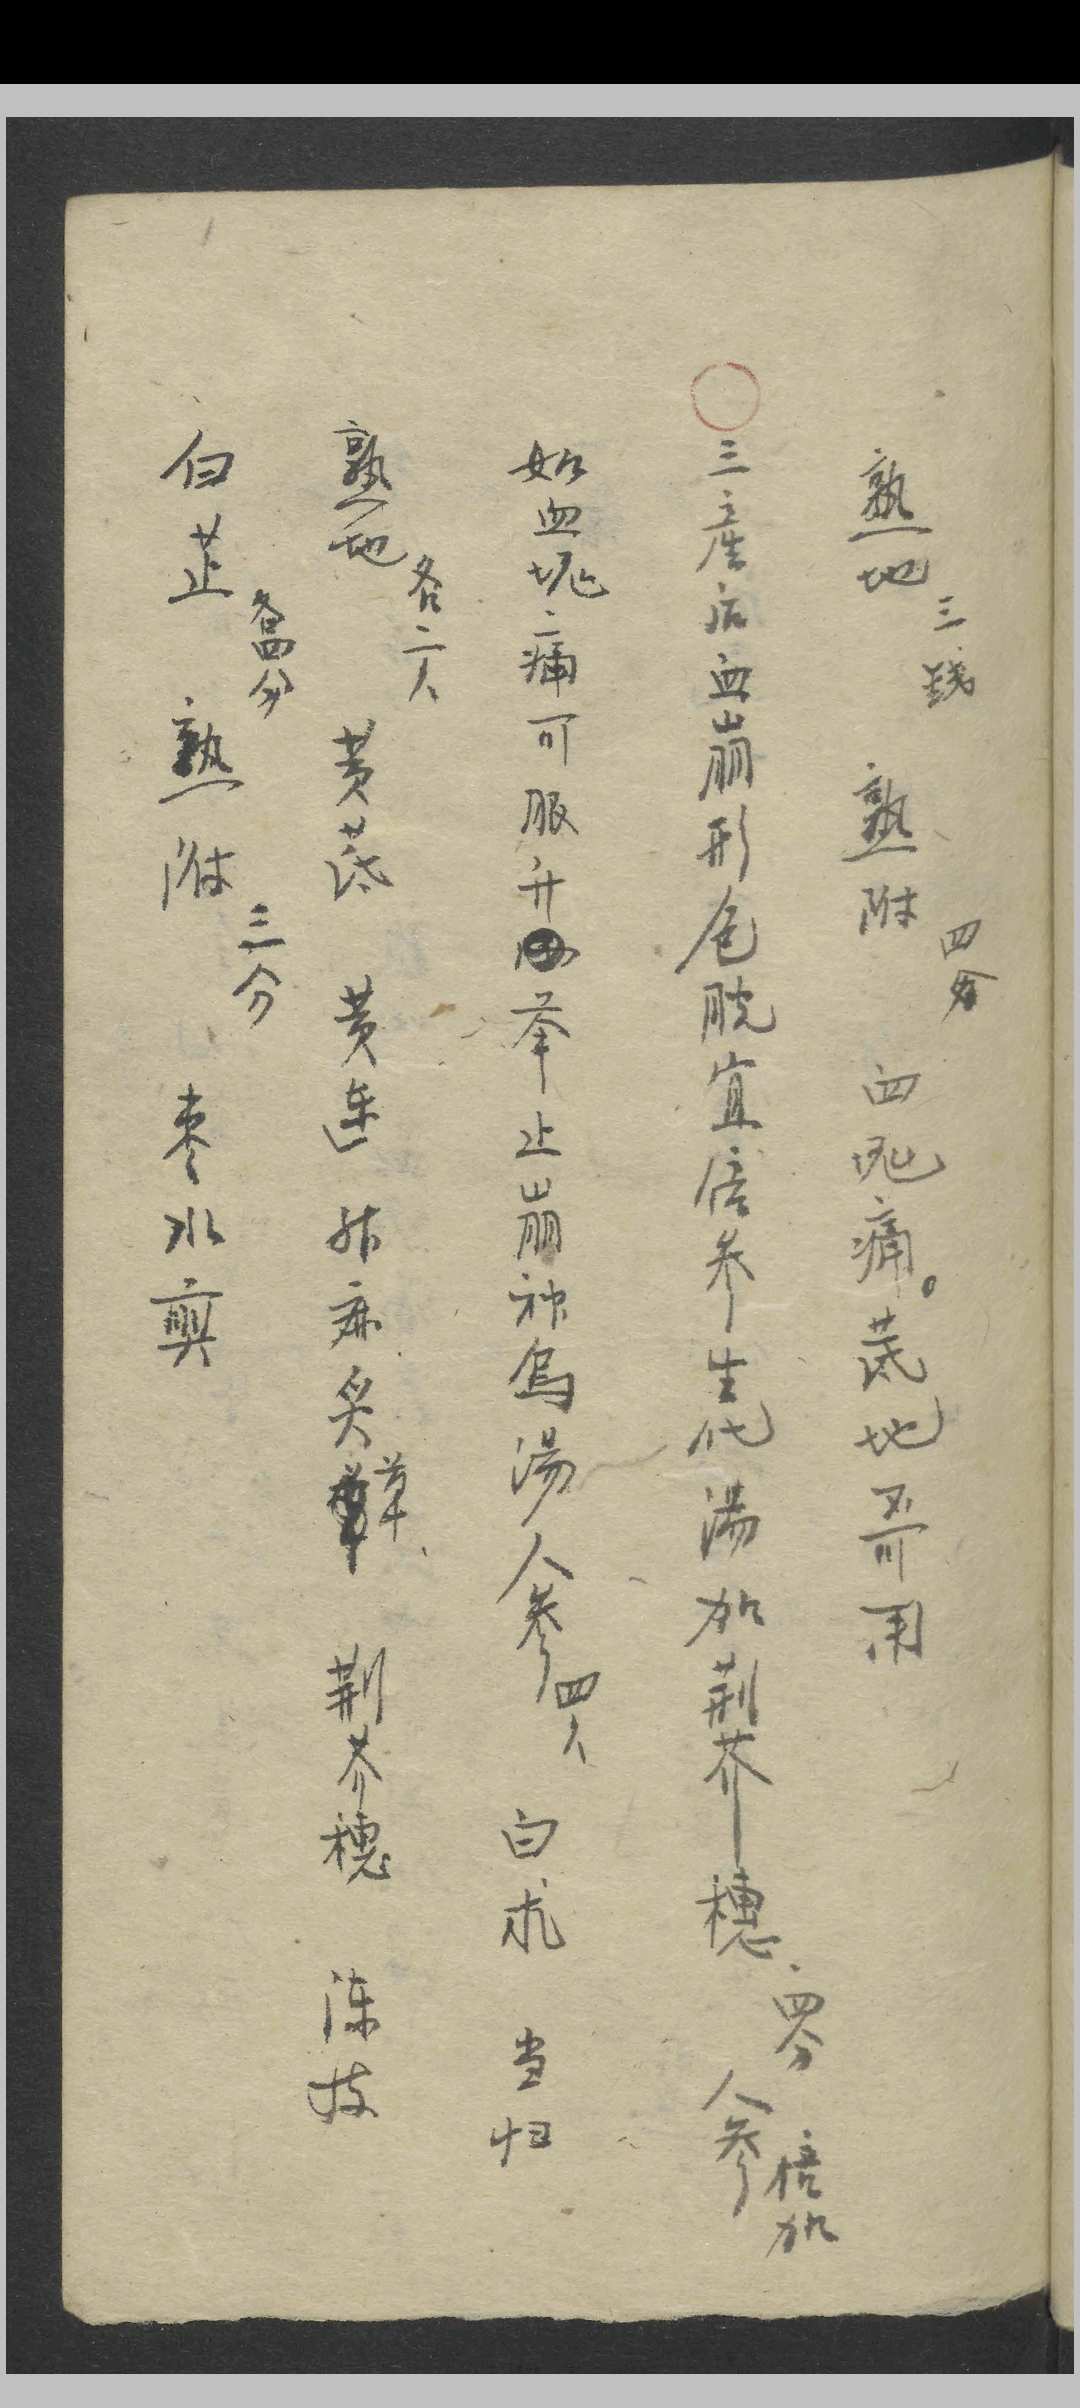 熟地三錢 熟附四分 血塊痛。芪地不可用
三產后血崩形色脫宜倍參生化湯加荆芥穗四分 人參倍加
如血塊痛可服升舉止崩神湯人參四 白朮 当归
熟地各二 黄芪 黄連 升麻炙草 荆芥穗 陳皮
白芷各四分 熟附三分 枣水煎